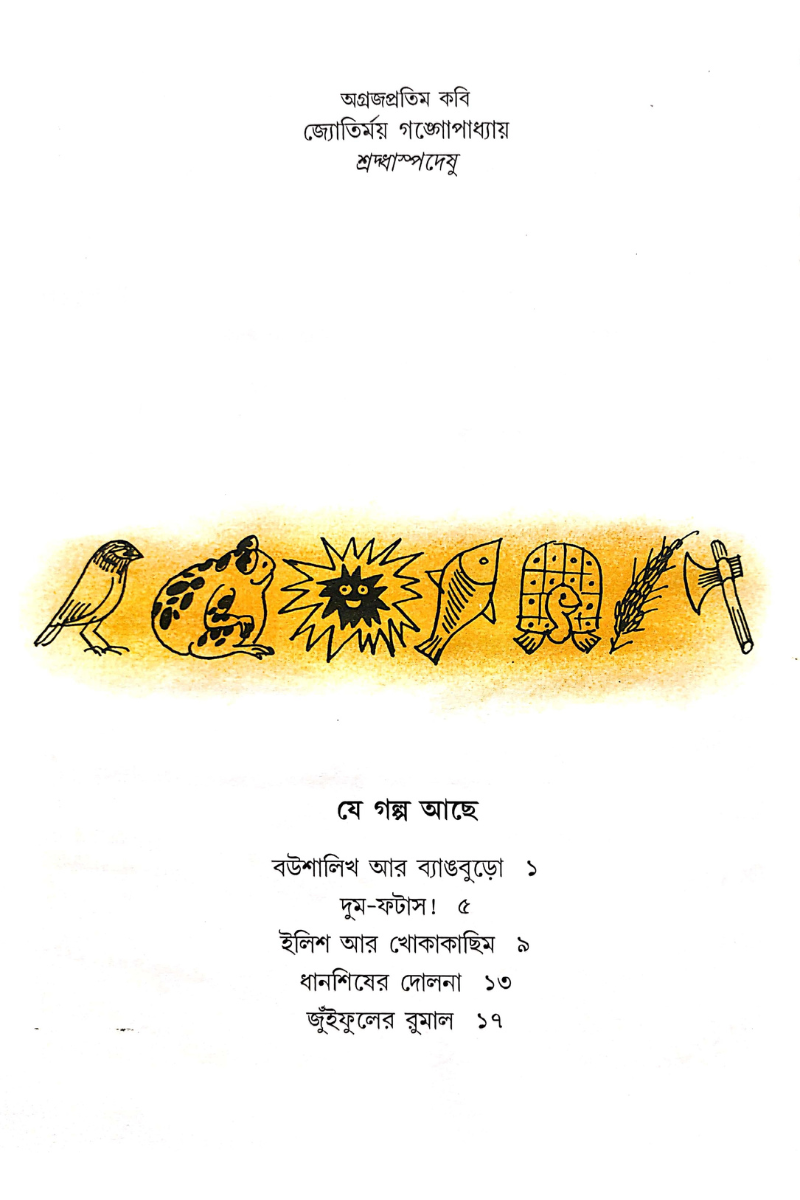 অগ্রজপ্রতিম কবি
জ্যোতির্ময় গঙ্গোপাধ্যায়
শ্রদ্ধাস্পদেষু
যে গল্প আছে
বউশালিখ আর ব্যাঙবুড়ো ১
দুম-ফটাস! ৫
ইলিশ আর খোকাকাছিম ৯
ধানশিষের দোলনা ১৩
জুঁইফুলের রুমাল ১৭